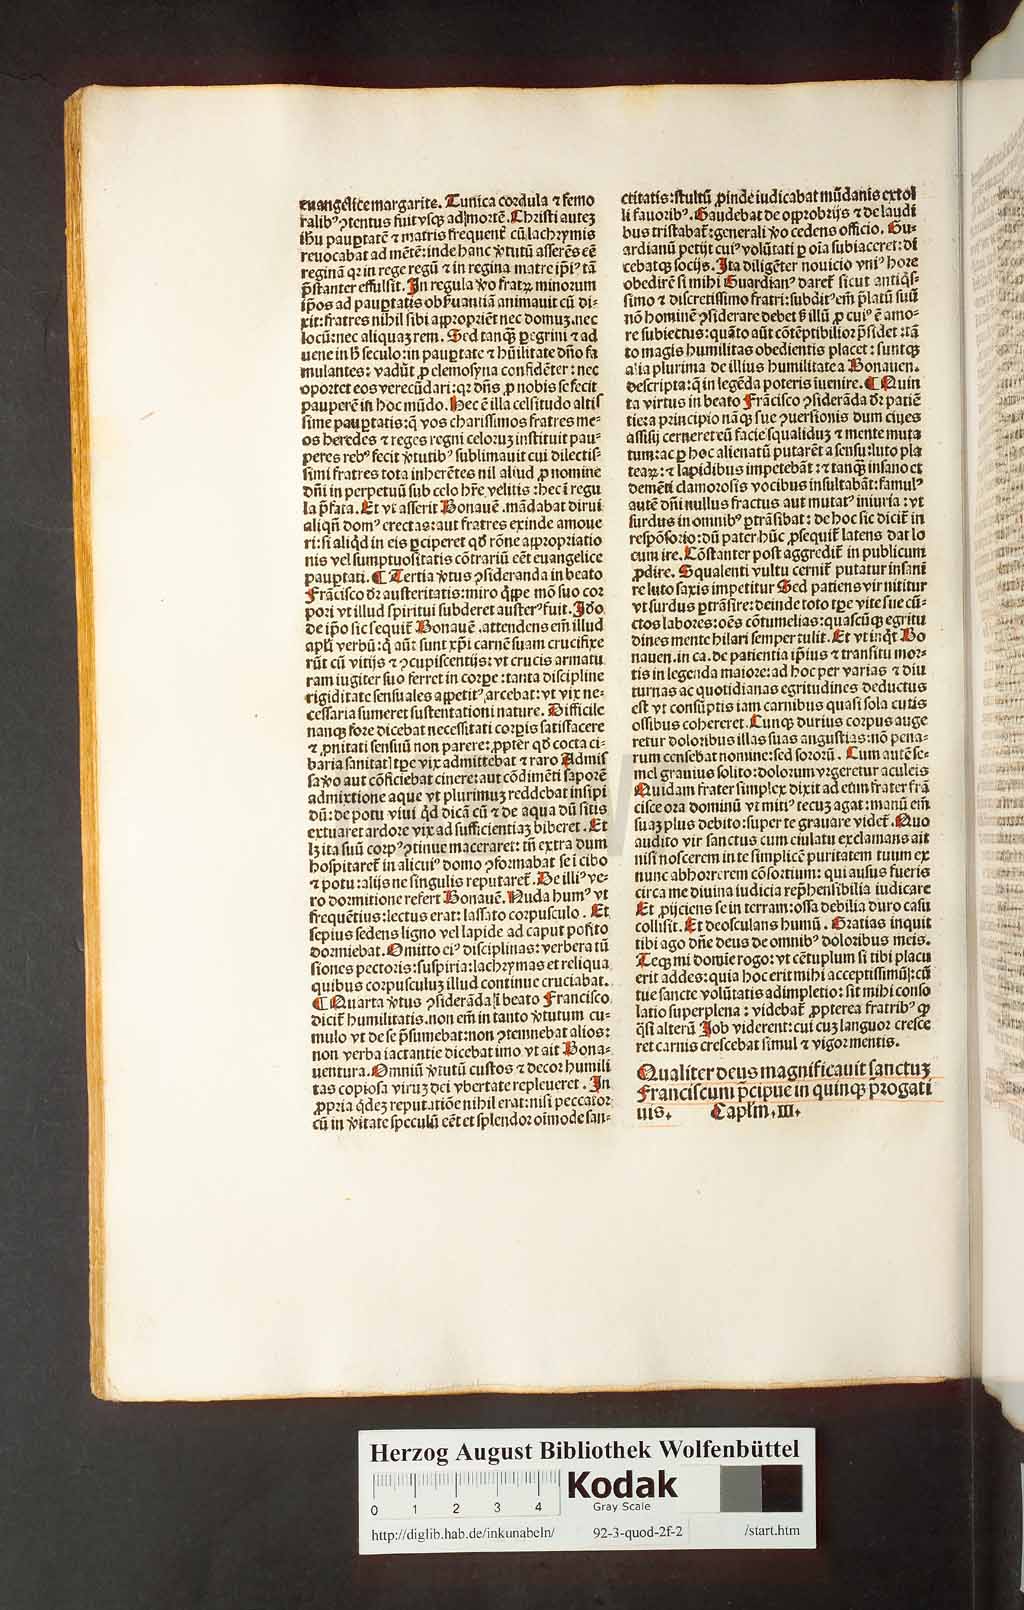 euangelice margarite. Tunica cordula ⁊ femo
ralibꝰ ꝯtentus fuit vsqꝫ ad mortē. Christi autez
ihū paupertatē ⁊ matris frequenter cū lachrymis
reuocabat ad mētē: inde hanc v̾tutū asserēs eē
reginā qr in rege regū ⁊ in regina matre ip̄i⁹ tā
p̄stanter effulsit. In regula v̾o fratꝝ minorum
ip̄os ad paupertatis obẜuantiā animauit cū di-
xit: fratres nihil sibi approprient nec domuꝫ. nec
locū: nec aliquaꝫ rem. Sed tanqꝫ ꝑegrini ⁊ ad
uene in h̄ seculo: in paupertate ⁊ hūilitate dn̄o fa
mulantes: vadūt ꝓ elemosyna confidēter: nec
oportet eos verecūdari: qr dn̄s ꝓ nobis se fecit
pauperē in hoc mūdo. Hec ē illa celsitudo altis
sime paupertatis: q̄ vos charissimos fratres me-
os heredes ⁊ reges regni celoruꝫ instituit pau-
peres rebꝰ fecit v̾tutibꝰ sublimauit cui dilectis-
simi fratres tota inherētes nil aliud ꝓ nomine
dn̄i in perpetuū sub celo hr̄e velitis: hec i regu
la p̄fata. Et vt asserit Bonauē. mādabat dirui
aliqn̄ domꝰ erectas: aut fratres exinde amoue
ri: si aliqd in eis ꝑciperet qd̄ rōne appropriatio
nis vel sumptuositatis cōtrariū eēt euangelice
paupertati. ¶ Tertia v̾tus ꝯsideranda in beato
Frācisco dr̄ austeritatis: miro qͥppe mō suo cor
pori vt illud spiritui subderet austerꝰ fuit. Ido
de ip̄o sic sequit̄ Bonauē. attendens em̄ illud
apl̄i verbū: q̄ aūt sunt xp̄i carnē suam crucifixe
rūt cū vitijs ⁊ ꝯcupiscentijs: vt crucis armatu
ram iugiter suo ferret in corpe: tanta discipline
rigiditate sensuales appetitꝰ arcebat: vt vix ne-
cessaria sumeret sustentationi nature. Difficile
nanqꝫ fore dicebat necessitati corpis satisfacere
⁊ ꝓnitati sensuū non parere: ꝓpter qd̄ cocta ci-
baria sanitatl tpe vix admittebat ⁊ raro Admis
sa v̾o aut cōficiebat cinere: aut cōdimēti saporē
admixtione aque vt plurimuꝫ reddebat insipi
dū: de potu vini qͥd dicā cū ⁊ de aqua dū sitis
extuaret ardore vix ad sufficientiaꝫ biberet. Et
lꝫ ita suū corpꝰ ꝯtinue maceraret: tn̄ extra dum
hospitaret̄ in alicuiꝰ domo ꝯformabat se i cibo
⁊ potu: alijs ne singulis reputaret̄. De illiꝰ ve-
ro dormitione refert Bonauē. Nuda humꝰ vt
frequētius: lectus erat: lassato corpusculo. Et
sepius sedens ligno vel lapide ad caput posito
dormiebat. Omitto eiꝰ disciplinas: verbera tū
siones pectoris: suspiria: lachrymas et reliqua
quibus corpusculuꝫ illud continue cruciabat.
¶ Quarta v̾tus ꝯsiderāda i beato Francisco
dicit̄ humilitatis. non em̄ in tanto v̾tutum cu-
mulo vt de se p̄sumebat: non ꝯtemnebat alios:
non verba iactantie dicebat imo vt ait Bona-
uentura. Omniū v̾tutū custos ⁊ decor humili
tas copiosa viruꝫ dei vbertate repleuerat. In
ꝓpria qͥdeꝫ reputatiōe nihil erat: nisi peccator
cū in v̾itate speculū eēt et splendor oīmode san-
ctitatis: stultū ꝓinde iudicabat mūdanis extol
li fauoribꝰ. Gaudebat de opprobrijs ⁊ de laudi
bus tristabat̄: generali v̾o cedens officio. Gu-
ardianū petijt cuiꝰ volūtati ꝑ oīa subiaceret: di
cebatqꝫ socijs. Ita diligēter nouicio vniꝰ hore
obedirē si mihi Guardianꝰ daret̄ sicut antiqͥs-
simo ⁊ discretissimo fratri: subditꝰ em̄ p̄latū suū
nō hominē ꝯsiderare debet sꝫ illū ꝓ cuiꝰ ē amo-
re subiectus: quāto aūt cōtēptibilior p̄sidet: tā
to magis humilitas obedientis placet: suntqꝫ
alia plurima de illius humilitate a Bonauen.
descripta: q̄ in legēda poteris iuenire. ¶ Quin
ta virtus in beato Frācisco ꝯsiderāda dr̄ patiē
tie: a principio nāqꝫ sue ꝯuersionis dum ciues
assisij cernerēt eū facie squaliduꝫ ⁊ mente muta
tum: ac ꝑ hoc alienatū putarēt a sensu: luto pla
teaꝝ: ⁊ lapidibus impetebāt: ⁊ tanqꝫ insano et
demēti clamorosis vocibus insultabāt: famulꝰ
autē dn̄i nullus fractus aut mutatꝰ iniuria: vt
surdus in omnibꝰ ꝑtrāsibat: de hoc sic dicit̄ in
respōsorio: dū pater hūc ꝓsequit̄ latens dat lo
cum ire. Cōstanter post aggredit̄ in publicum
ꝓdire. Squalenti vultu cernit̄ putatur insani
re luto saxis impetitur Sed patiens vir nititur
vt surdus ꝑtrāsire: deinde toto tpe vite sue cū-
ctos labores: oēs cōtumelias: quascūqꝫ egritu
dines mente hilari semper tulit. Et vt inqͥt Bo
nauen. in ca. de patientia ip̄ius ⁊ transitu mor-
tis in legenda maiore: ad hoc per varias ⁊ diu
turnas ac quotidianas egritudines deductus
est vt consūptis iam carnibus quasi sola cutis
ossibus cohereret. Cunqꝫ durius corpus auge
retur doloribus illas suas angustias: nō pena-
rum censebat nomine: sed sororū. Cum autē se-
mel grauius solito: dolorum vrgeretur aculeis
Quidam frater simplex dixit ad eum frater frā
cisce ora dominū vt mitiꝰ tecuꝫ agat: manū em̄
suaꝫ plus debito: super te grauare videt̄. Quo
audito vir sanctus cum eiulatu exclamans ait
nisi noscerem in te simplicē puritatem tuum ex
nunc abhorrerem cōsortium: qui ausus fueris
circa me diuina iudicia rep̄hensibilia iudicare
Et ꝓijciens se in terram: ossa debilia duro casu
collisit. Et deosculans humū. Gratias inquit
tibi ago dn̄e deus de omnibꝰ doloribus meis.
Teqꝫ mi domīe rogo: vt cētuplum si tibi placu
erit addes: quia hoc erit mihi acceptissimū: cū
tue sancte volūtatis adimpletio: sit mihi conso
latio superplena: videbat̄ ꝓpterea fratribꝰ qꝫ
qͥsi alterū Job viderent: cui cuꝫ languor cresce
ret carnis crescebat simul ⁊ vigor mentis.
Qualiter deus magnificauit sanctuꝫ
Franciscum p̄cipue in quinqꝫ p̄rogati
uis. Caplm. III.
Herzog August Bibliothek Wolfenbüttel
Kodak
Gray Scale
0 1 2 3 4
http://diglib.hab.de/inkunabeln/ 92-3-quod-2f-2 /start.htm